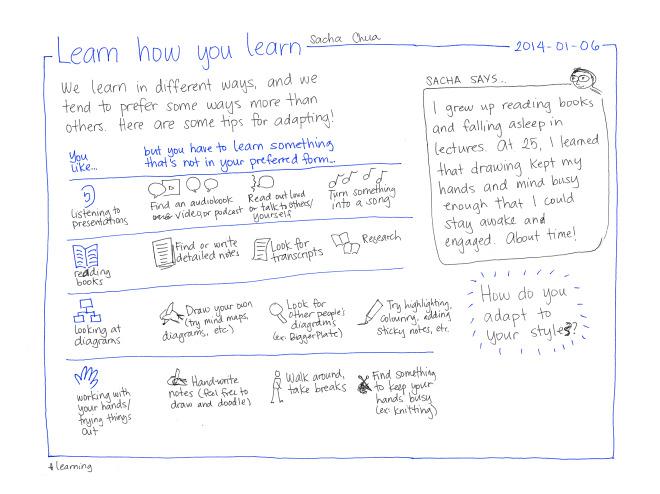 Learn how you learn
Sacha Chua
2014-01-06
We learn in different ways, and we
tend to prefer some ways more than
others. Here are some tips for adapting!
You
like...
but you have to learn something
that's not in your preferred form...
Listening to
presentations
Find an audiobook
video, or podcast
Read out loud
or talk to others/
yourself
Turn something
into a song
reading
books
Find or write
detailed notes
Look for
transcripts
Research
Looking at
diagrams
Draw your own
(try mind maps,
diagrams, etc.)
Look for
other people's
diagrams
(ex: BiggerPlate)
Try highlighting,
colouring, adding
sticky notes, etc.
working with
your hands/
trying things
out
Hand-write
notes (feel free to
draw and doodle)
Walk around,
take breaks
Find something
to keep your
hands busy
(ex: knitting)
SACHA SAYS...
I grew up reading books
and falling asleep in
lectures. At 25, I learned
that drawing kept my
hands and mind busy
enough that I could
stay awake and
engaged. About time!
How do you
adapt to
your styles?
learning